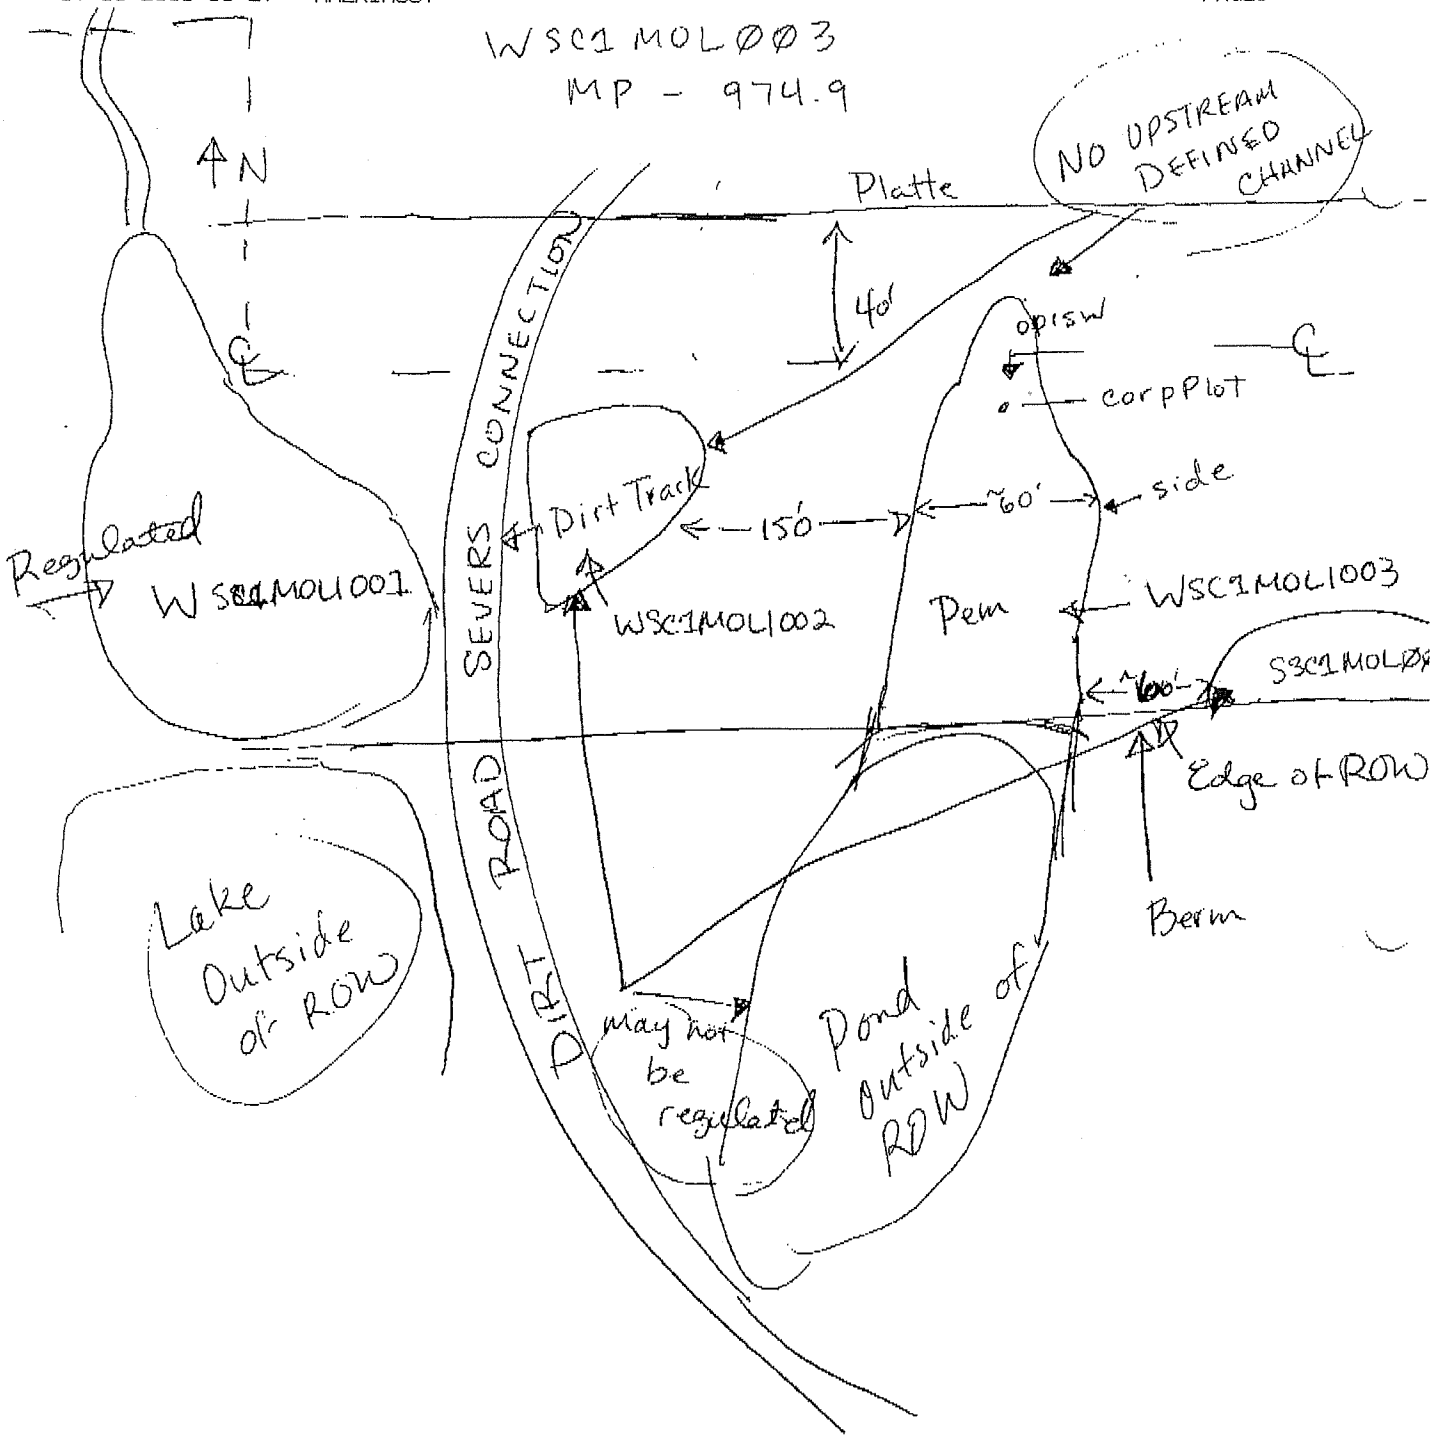 WSC1MOLØØ3
MP - 974.9
NO UPSTREAM
DEFINED
CHANNEL
N
Platte
40'
℄
℄
corpPlot
SEVERS CONNECTION
Dirt Track
150'
~60'
side
Regulated
WSC1MOL1001
WSC1MOL1002
Pem
WSC1MOL1003
~60'
Edge of ROW
Berm
DIRT ROAD
Lake
Outside
of ROW
may not
be
regulated
Pond
Outside of
ROW